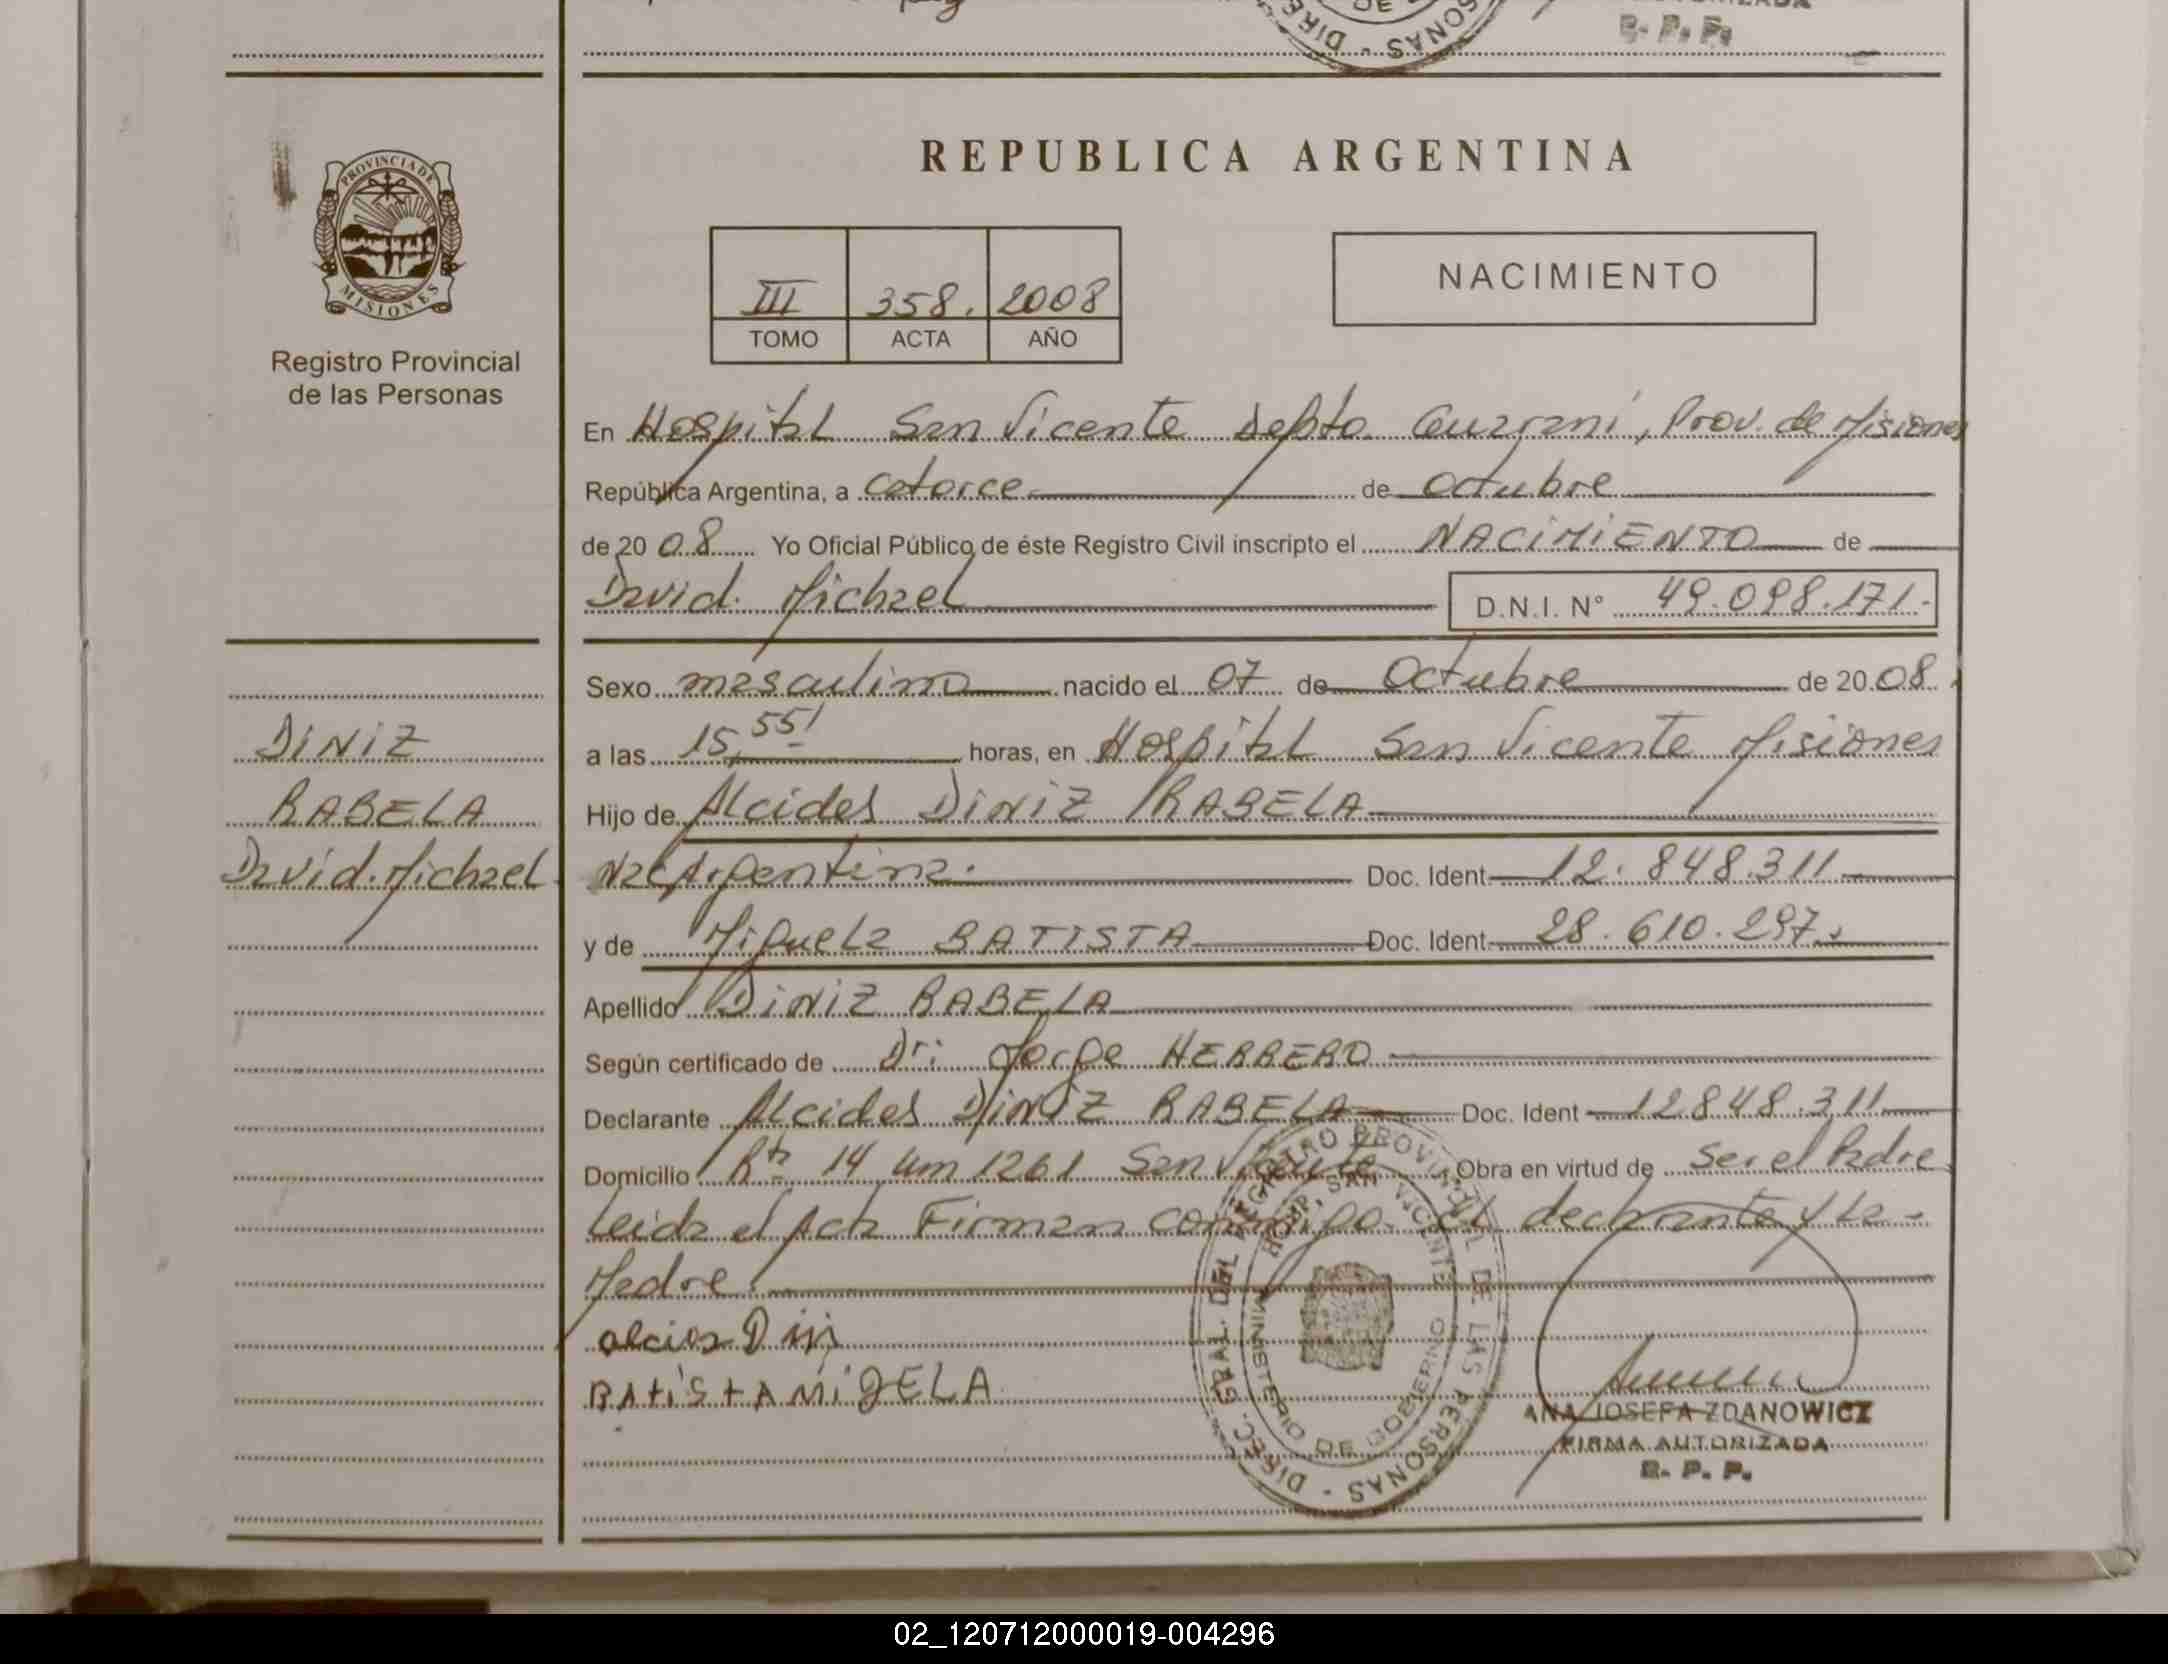 DE
DIREC
SONAS
R. P. P.
REPUBLICA ARGENTINA
PROVINCIA DE
MISIONES
Registro Provincial
de las Personas
III 358. 2008
TOMO ACTA AÑO
NACIMIENTO
En Hospital San Vicente Depto. Guarani, Prov. de Misiones
República Argentina, a catorce de octubre
de 20 08 Yo Oficial Público de éste Registro Civil inscripto el NACIMIENTO de
David Michael D.N.I. N° 49.098.171.-
Sexo masculino nacido el 07 de Octubre de 20 08.
a las 15,55' horas, en Hospital San Vicente Misiones
Hijo de Alcides DINIZ RABELA
Nac Argentina. Doc. Ident 12.848.311
y de Miguela BATISTA Doc. Ident. 28.610.297.-
Apellido DINIZ RABELA
Según certificado de Dr: Jorge HERRERO
Declarante Alcides DINIZ RABELA Doc. Ident 12848.311
Domicilio Rta 14 Km 1261 San Vicente Obra en virtud de ser el Padre
Leida el Acta Firman conmigo el declarante y la-
Madre.
BAtiStA MiGELA
DINIZ
RABELA
David Michael
DIREC. GRAL. DEL REGISTRO PROVINCIAL DE LAS PERSONAS -
HOSP. SAN VICENTE
MINISTERIO DE GOBIERNO
ANA JOSEFA ZDANOWICZ
FIRMA AUTORIZADA
R. P. P.
02_120712000019-004296